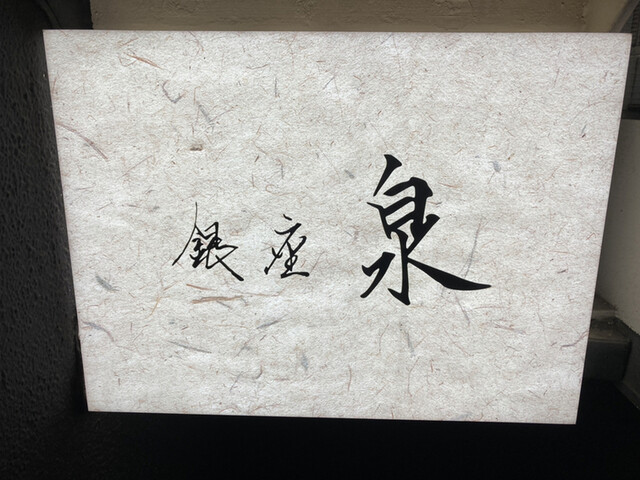 銀座 泉